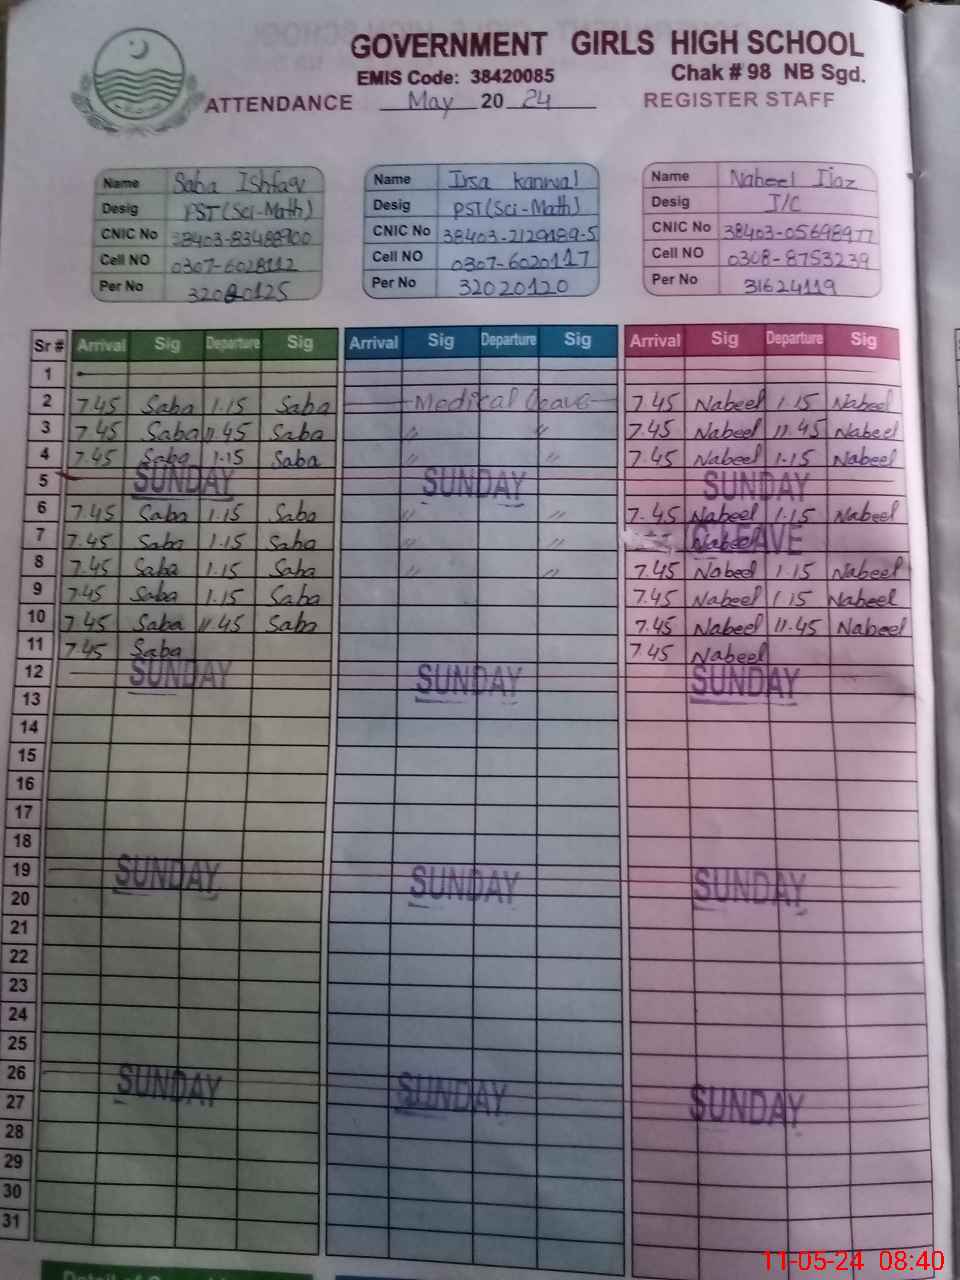 GOVERNMENT GIRLS HIGH SCHOOL
EMIS Code: 38420085 Chak # 98 NB Sgd.
ATTENDANCE May 2024 REGISTER STAFF
Name Saba Ishfaq Name Irsa Kanwal Name Nabeel Ijaz
Desig PST(Sci-Math) Desig PST(Sci-Math) Desig I/C
CNIC No 38403-83488900 CNIC No 38403-2129189-5 CNIC No 38403-05698977
Cell NO 0307-6028112 Cell NO 0307-6020117 Cell NO 0308-8753239
Per No Per No 32020120 Per No 31624119
Sr # Arrival Sig Departure Sig Arrival Sig Departure Sig Arrival Sig Departure Sig
1
2 7.45 Saba 1.15 Saba Medical Leave 7.45 Nabeel 1.15 Nabeel
3 7.45 Saba 11.45 Saba " " 7.45 Nabeel 11.45 Nabeel
4 7.45 Saba 1.15 Saba " " 7.45 Nabeel 1.15 Nabeel
5 SUNDAY SUNDAY SUNDAY
6 7.45 Saba 1.15 Saba " " 7.45 Nabeel 1.15 Nabeel
7 7.45 Saba 1.15 Saba " " Nabeel LEAVE
8 7.45 Saba 1.15 Saba " " 7.45 Nabeel 1.15 Nabeel
9 7.45 Saba 1.15 Saba 7.45 Nabeel 1.15 Nabeel
10 7.45 Saba 11.45 Saba 7.45 Nabeel 11.45 Nabeel
11 7.45 Saba 7.45 Nabeel
12 SUNDAY SUNDAY SUNDAY
13
14
15
16
17
18
19 SUNDAY SUNDAY SUNDAY
20
21
22
23
24
25
26 SUNDAY SUNDAY SUNDAY
27
28
29
30
31
11-05-24 08:40